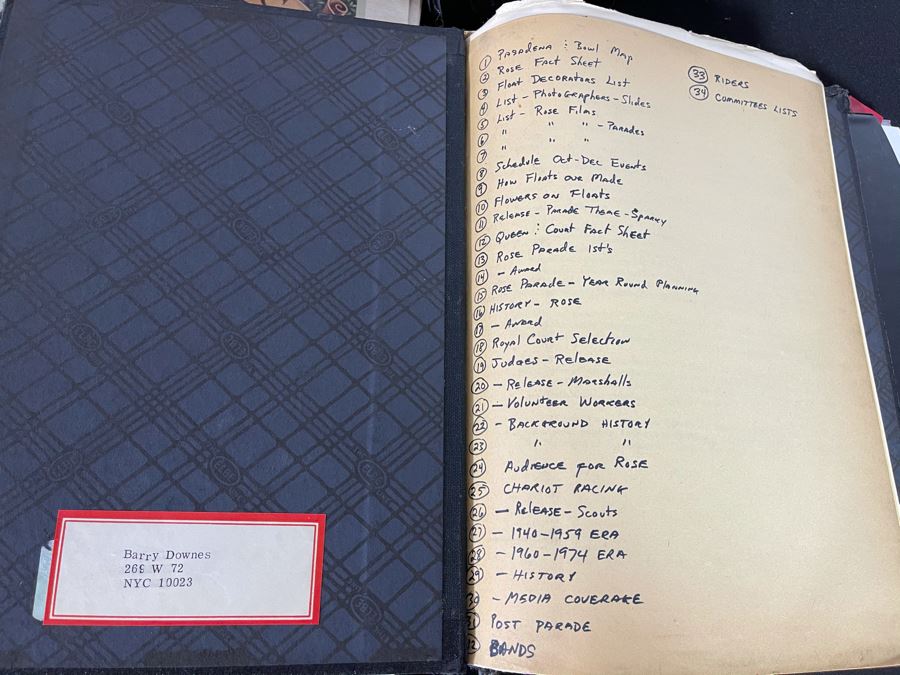 Barry Downes
269 W 72
NYC 10023
① PASADENA : Bowl Map
② Rose Fact Sheet
③ Float Decorators List
④ List - Photographers - Slides
⑤ List - Rose Films
⑥ " " " - Parades
⑦ " " "
⑧ Schedule Oct-Dec Events
⑨ How Floats are Made
⑩ Flowers on Floats
⑪ Release - Parade Theme - Sparky
⑫ Queen : Court Fact Sheet
⑬ Rose Parade 1st's
⑭ - Award
⑮ Rose Parade - Year Round Planning
⑯ History - Rose
⑰ - Award
⑱ Royal Court Selection
⑲ Judges - Release
⑳ - Release - Marshalls
㉑ - Volunteer Workers
㉒ - Background History
㉓ " "
㉔ Audience for Rose
㉕ Chariot Racing
㉖ - Release - Scouts
㉗ - 1940-1959 ERA
㉘ - 1960-1974 ERA
㉙ - History
㉚ - Media Coverage
㉛ Post Parade
㉜ BANDS
㉝ Riders
㉞ Committees Lists